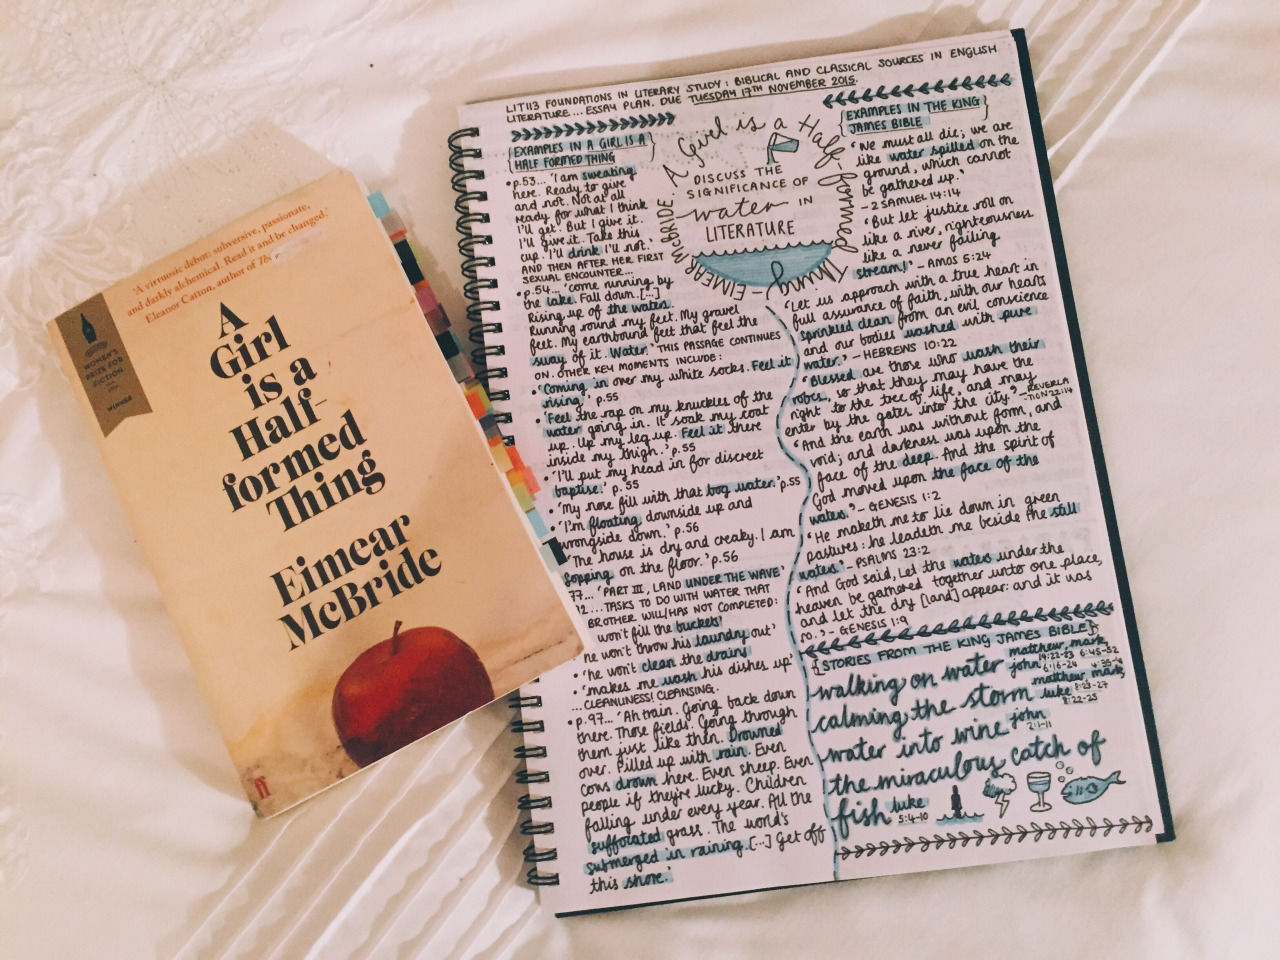 'A virtuosic debut: subversive, passionate,
and darkly alchemical. Read it and be changed.'
Eleanor Catton, author of
WOMEN'S
PRIZE FOR
FICTION
WINNER
A
Girl
is a
Half-
formed
Thing
Eimear
McBride
ff
LIT113 FOUNDATIONS IN LITERARY STUDY: BIBLICAL AND CLASSICAL SOURCES IN ENGLISH
LITERATURE... ESSAY PLAN. DUE TUESDAY 17TH NOVEMBER 2015.
EXAMPLES IN A GIRL IS A
HALF FORMED THING
•p.53... 'I am sweating
here. Ready to give
and not. Not at all
ready for what I think
I'll get. But I give it.
I'll give it. Take this
cup. I'll drink. I'll not.'
AND THEN AFTER HER FIRST
SEXUAL ENCOUNTER...
•p.54... 'come running by
the lake. Fall down. [...]
Rising up of the water.
Running round my feet. My gravel
feet. My earthbound feet that feel the
sway of it. Water.' THIS PASSAGE CONTINUES
ON. OTHER KEY MOMENTS INCLUDE:
•'Coming in over my white socks. Feel it
rising.' p.55
•'Feel the rap on my knuckles of the
water going in. It soak my coat
up. Up my leg up. Feel it there
inside my thigh.' p.55
•'I'll put my head in for discreet
baptise.' p.55
•'My nose fill with that bog water.' p.55
•'I'm floating downside up and
wrongside down.' p.56
'The house is dry and creaky. I am
sopping on the floor.' p.56
77... 'PART III, LAND UNDER THE WAVE'
...TASKS TO DO WITH WATER THAT
BROTHER WILL/HAS NOT COMPLETED:
won't fill the buckets'
'he won't throw his laundry out'
•'he won't clean the drains'
•'makes me wash his dishes up'
...CLEANLINESS! CLEANSING.
•p.97... 'Ah train. Going back down
there. Those fields. Going through
them just like then. Drowned
over. Filled up with rain. Even
cows drown here. Even sheep. Even
people if they're lucky. Children
falling under every year. All the
suffocated grass. The world's
submerged in raining. [...] Get off
this shore.'
A Girl is a Half formed Thing
by
– EIMEAR McBRIDE.
DISCUSS THE
SIGNIFICANCE OF
water IN
LITERATURE
EXAMPLES IN THE KING
JAMES BIBLE
'We must all die; we are
like water spilled on the
ground, which cannot
be gathered up.'
– 2 SAMUEL 14:14
'But let justice roll on
like a river, righteousness
like a never failing
stream!' – AMOS 5:24
'Let us approach with a true heart in
full assurance of faith, with our hearts
sprinkled clean from an evil conscience
and our bodies washed with pure
water.' – HEBREWS 10:22
'Blessed are those who wash their
robes, so that they may have the
right to the tree of life, and may
enter by the gates into the city.' – REVELA
-TION 22:14
'And the earth was without form, and
void; and darkness was upon the
face of the deep. And the spirit of
God moved upon the face of the
waters.' – GENESIS 1:2
'He maketh me to lie down in green
pastures: he leadeth me beside the still
waters' – PSALMS 23:2
'And God said, Let the waters under the
heaven be gathered together unto one place,
and let the dry [land] appear: and it was
so.' – GENESIS 1:9
STORIES FROM THE KING JAMES BIBLE
walking on water matthew, mark,
14:22-33 6:45-52
john
6:16-24
calming the storm matthew, mark,
8:23-27
luke
8:22-25
water into wine john
2:1-11
the miraculous catch of
fish luke
5:4-10